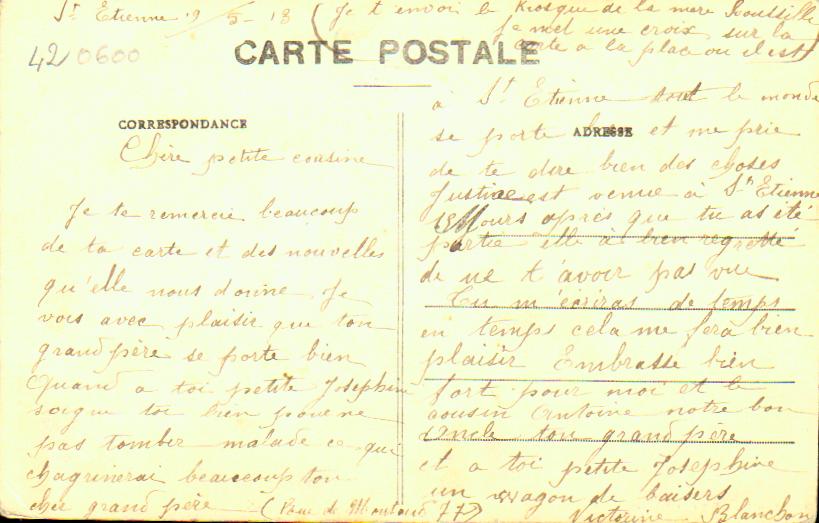 St Etienne 9/5-18 (Je t'envoi le Kiosque de la mere
Je met une croix sur la
carte a la place ou il est)
42 0600
CARTE POSTALE
CORRESPONDANCE
Chère petite cousine
Je te remercie beaucoup
de ta carte et des nouvelles
qu'elle nous donne Je
vois avec plaisir que ton
grand père se porte bien
Quand a toi petite Josephine
soigne toi bien pour ne
pas tomber malade ce qui
chagrinerai beaucoup ton
cher grand père (Rue de 77)
ADRESSE
à St Etienne tout le monde
se porte bien et me prie
de te dire bien des choses
Justine est venue à St Etienne
jours après que tu as été
partie elle à bien regretté
de ne t'avoir pas vue
Tu m'écriras de temps
en temps cela me fera bien
plaisir Embrasse bien
fort pour moi et le
cousin Antoine notre bon
Oncle ton grand père
et a toi petite Josephine
un wagon de baisers
Victorine Blanchon